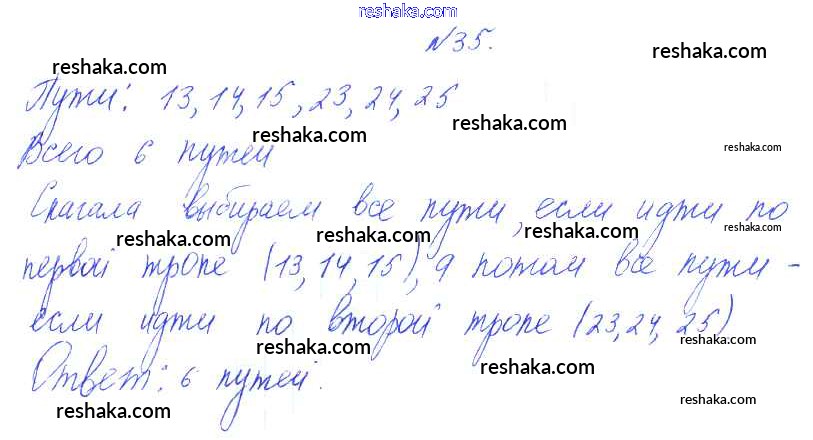 reshaka.com
№35.
reshaka.com
reshaka.com
Пути: 13, 14, 15, 23, 24, 25
reshaka.com
reshaka.com
Всего 6 путей
reshaka.com
Сначала выбираем все пути, если идти по
reshaka.com
reshaka.com
reshaka.com
первой тропе (13, 14, 15), а потом все пути -
если идти по второй тропе (23, 24, 25)
reshaka.com
reshaka.com
Ответ: 6 путей.
reshaka.com
reshaka.com
reshaka.com